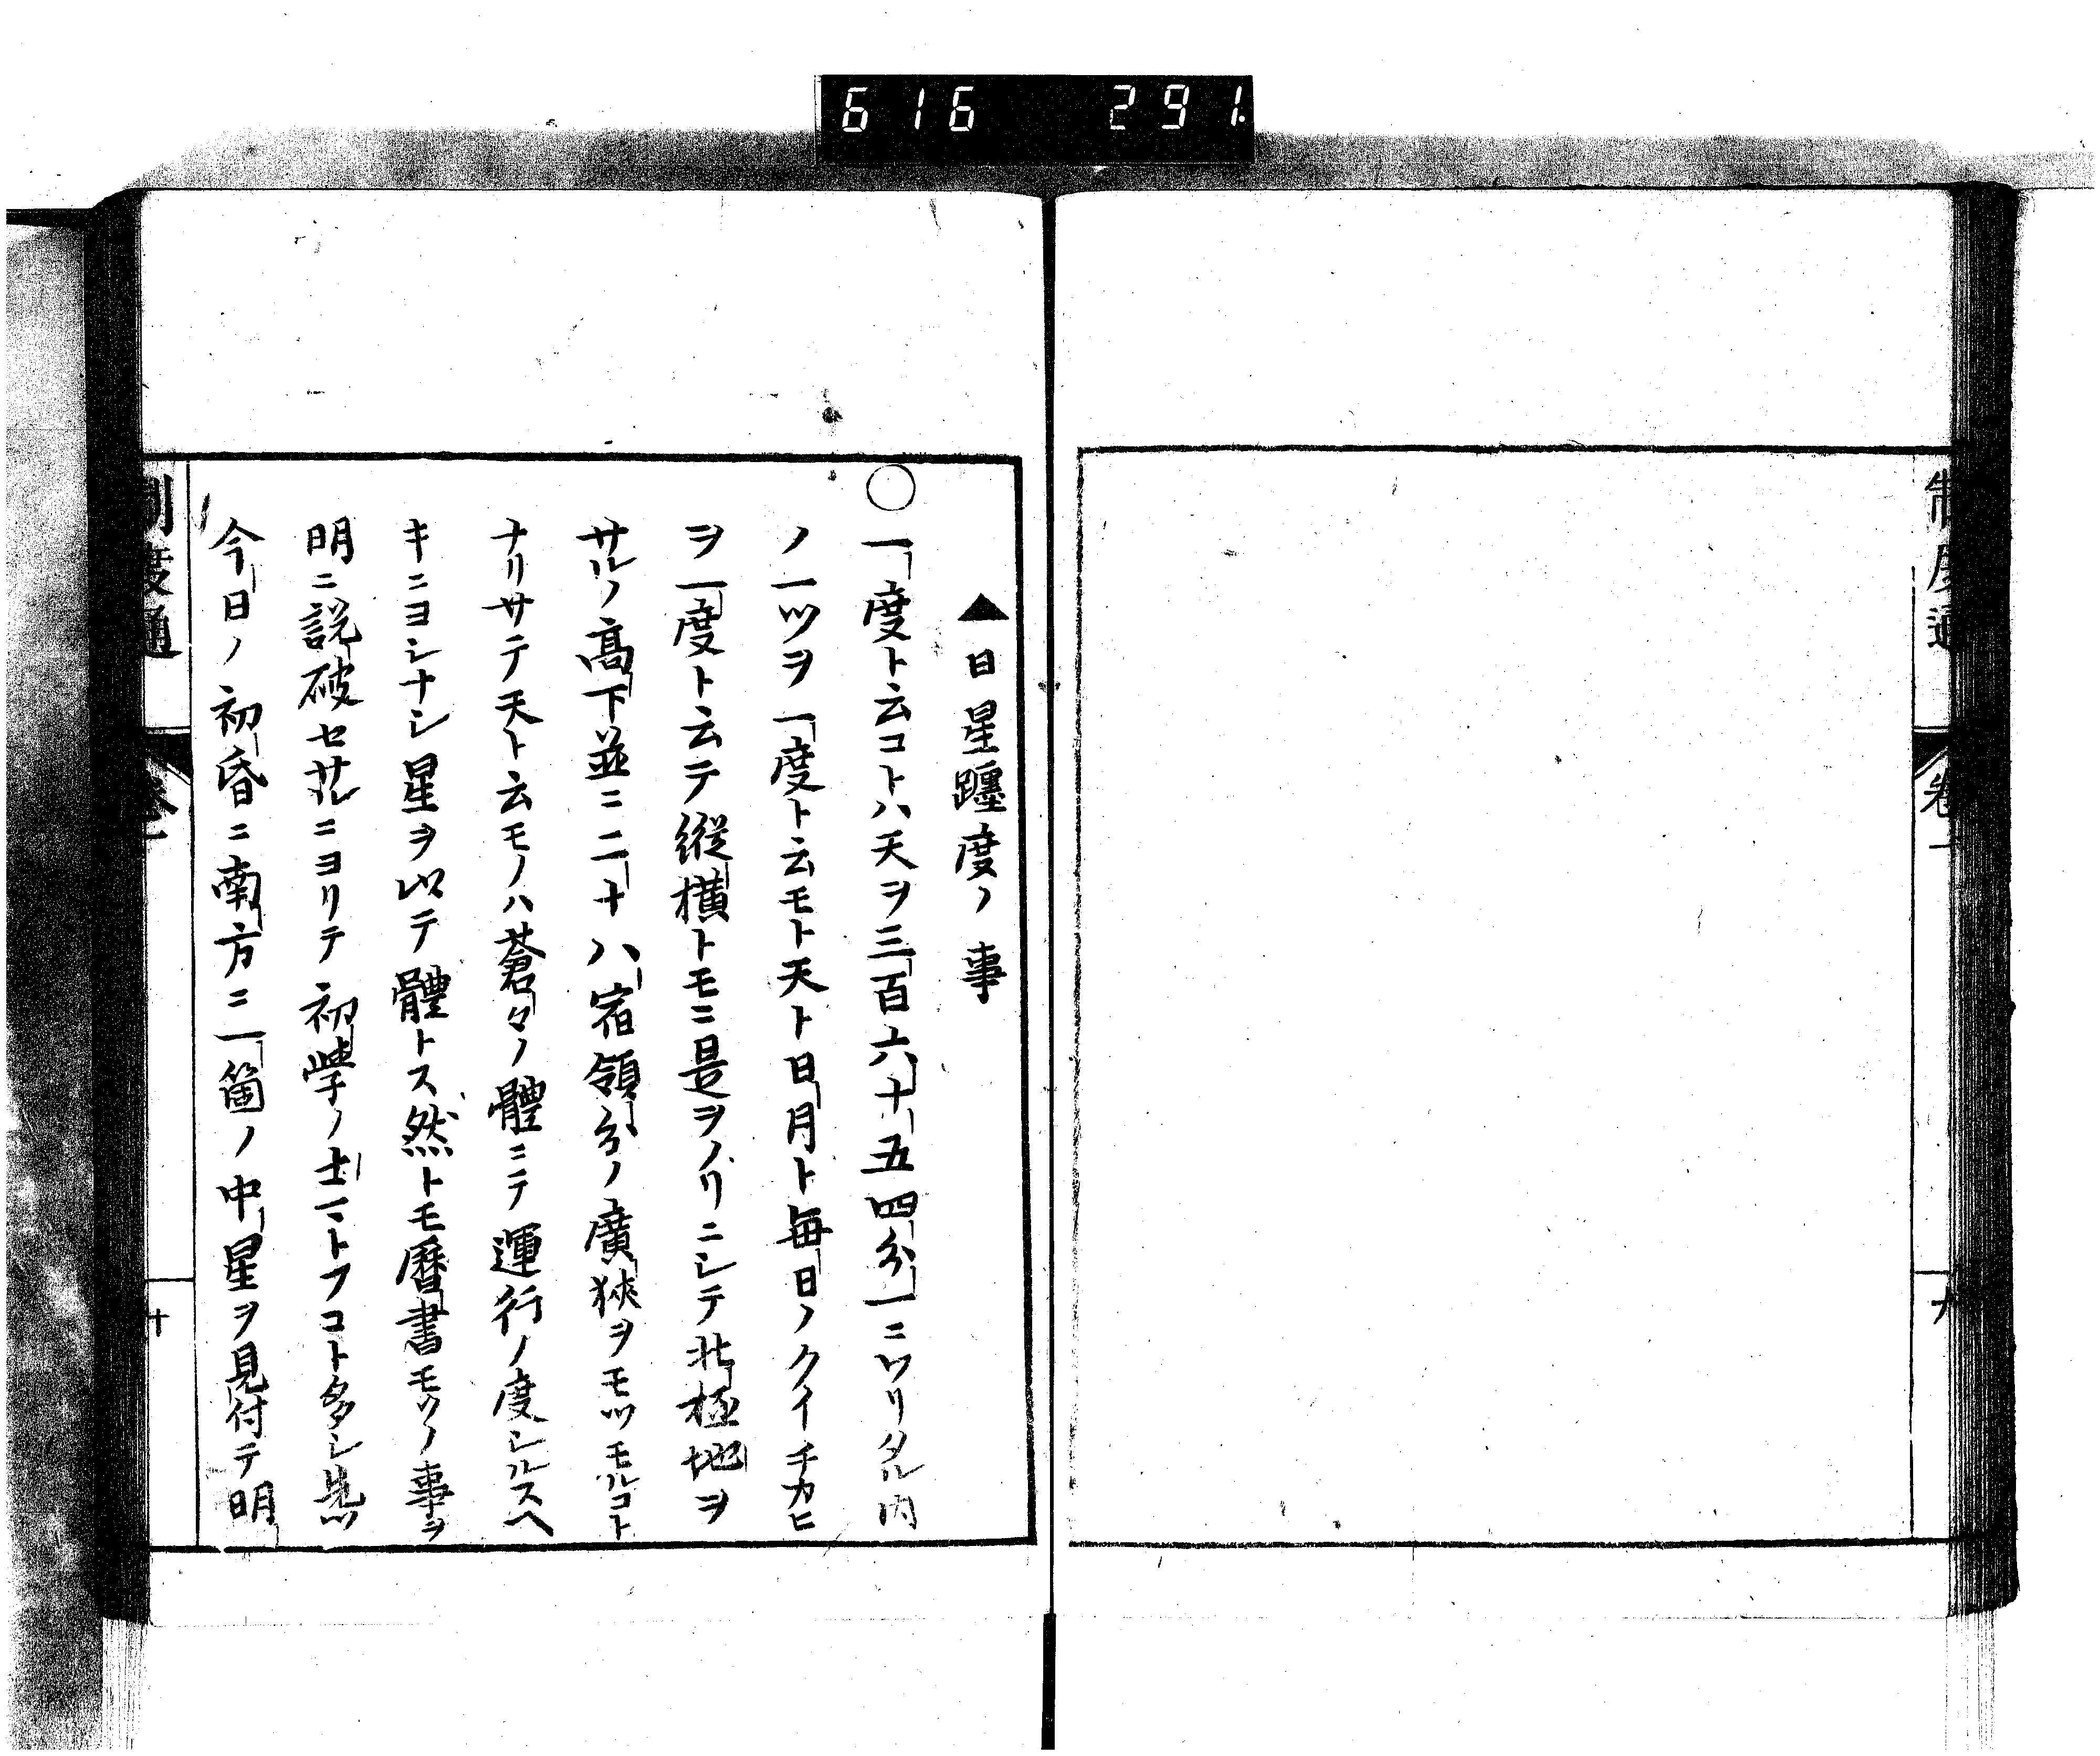 616 291
制度通 卷一 九
▲日星躔度ノ事
○一度ト云コトハ天ヲ三百六十五四分一ニワリタル内
ノ一ツヲ一度ト云モト天ト日月ト毎日ノクイチカヒ
ヲ一度ト云テ縱横トモニ是ヲノリニシテ北極地ヲ
サルノ高下並ニ二十八宿領分ノ廣狹ヲモツモルコト
ナリサテ天ト云モノハ蒼々ノ體ニテ運行ノ度シルスヘ
キニヨシナシ星ヲ以テ體トス然トモ曆書モツノ事ヲ
明ニ説破セサルニヨリテ初學ノ士マトフコト多シ先ツ
今日ノ初昏ニ南方ニ一箇ノ中星ヲ見付テ明
制度通 卷一 十